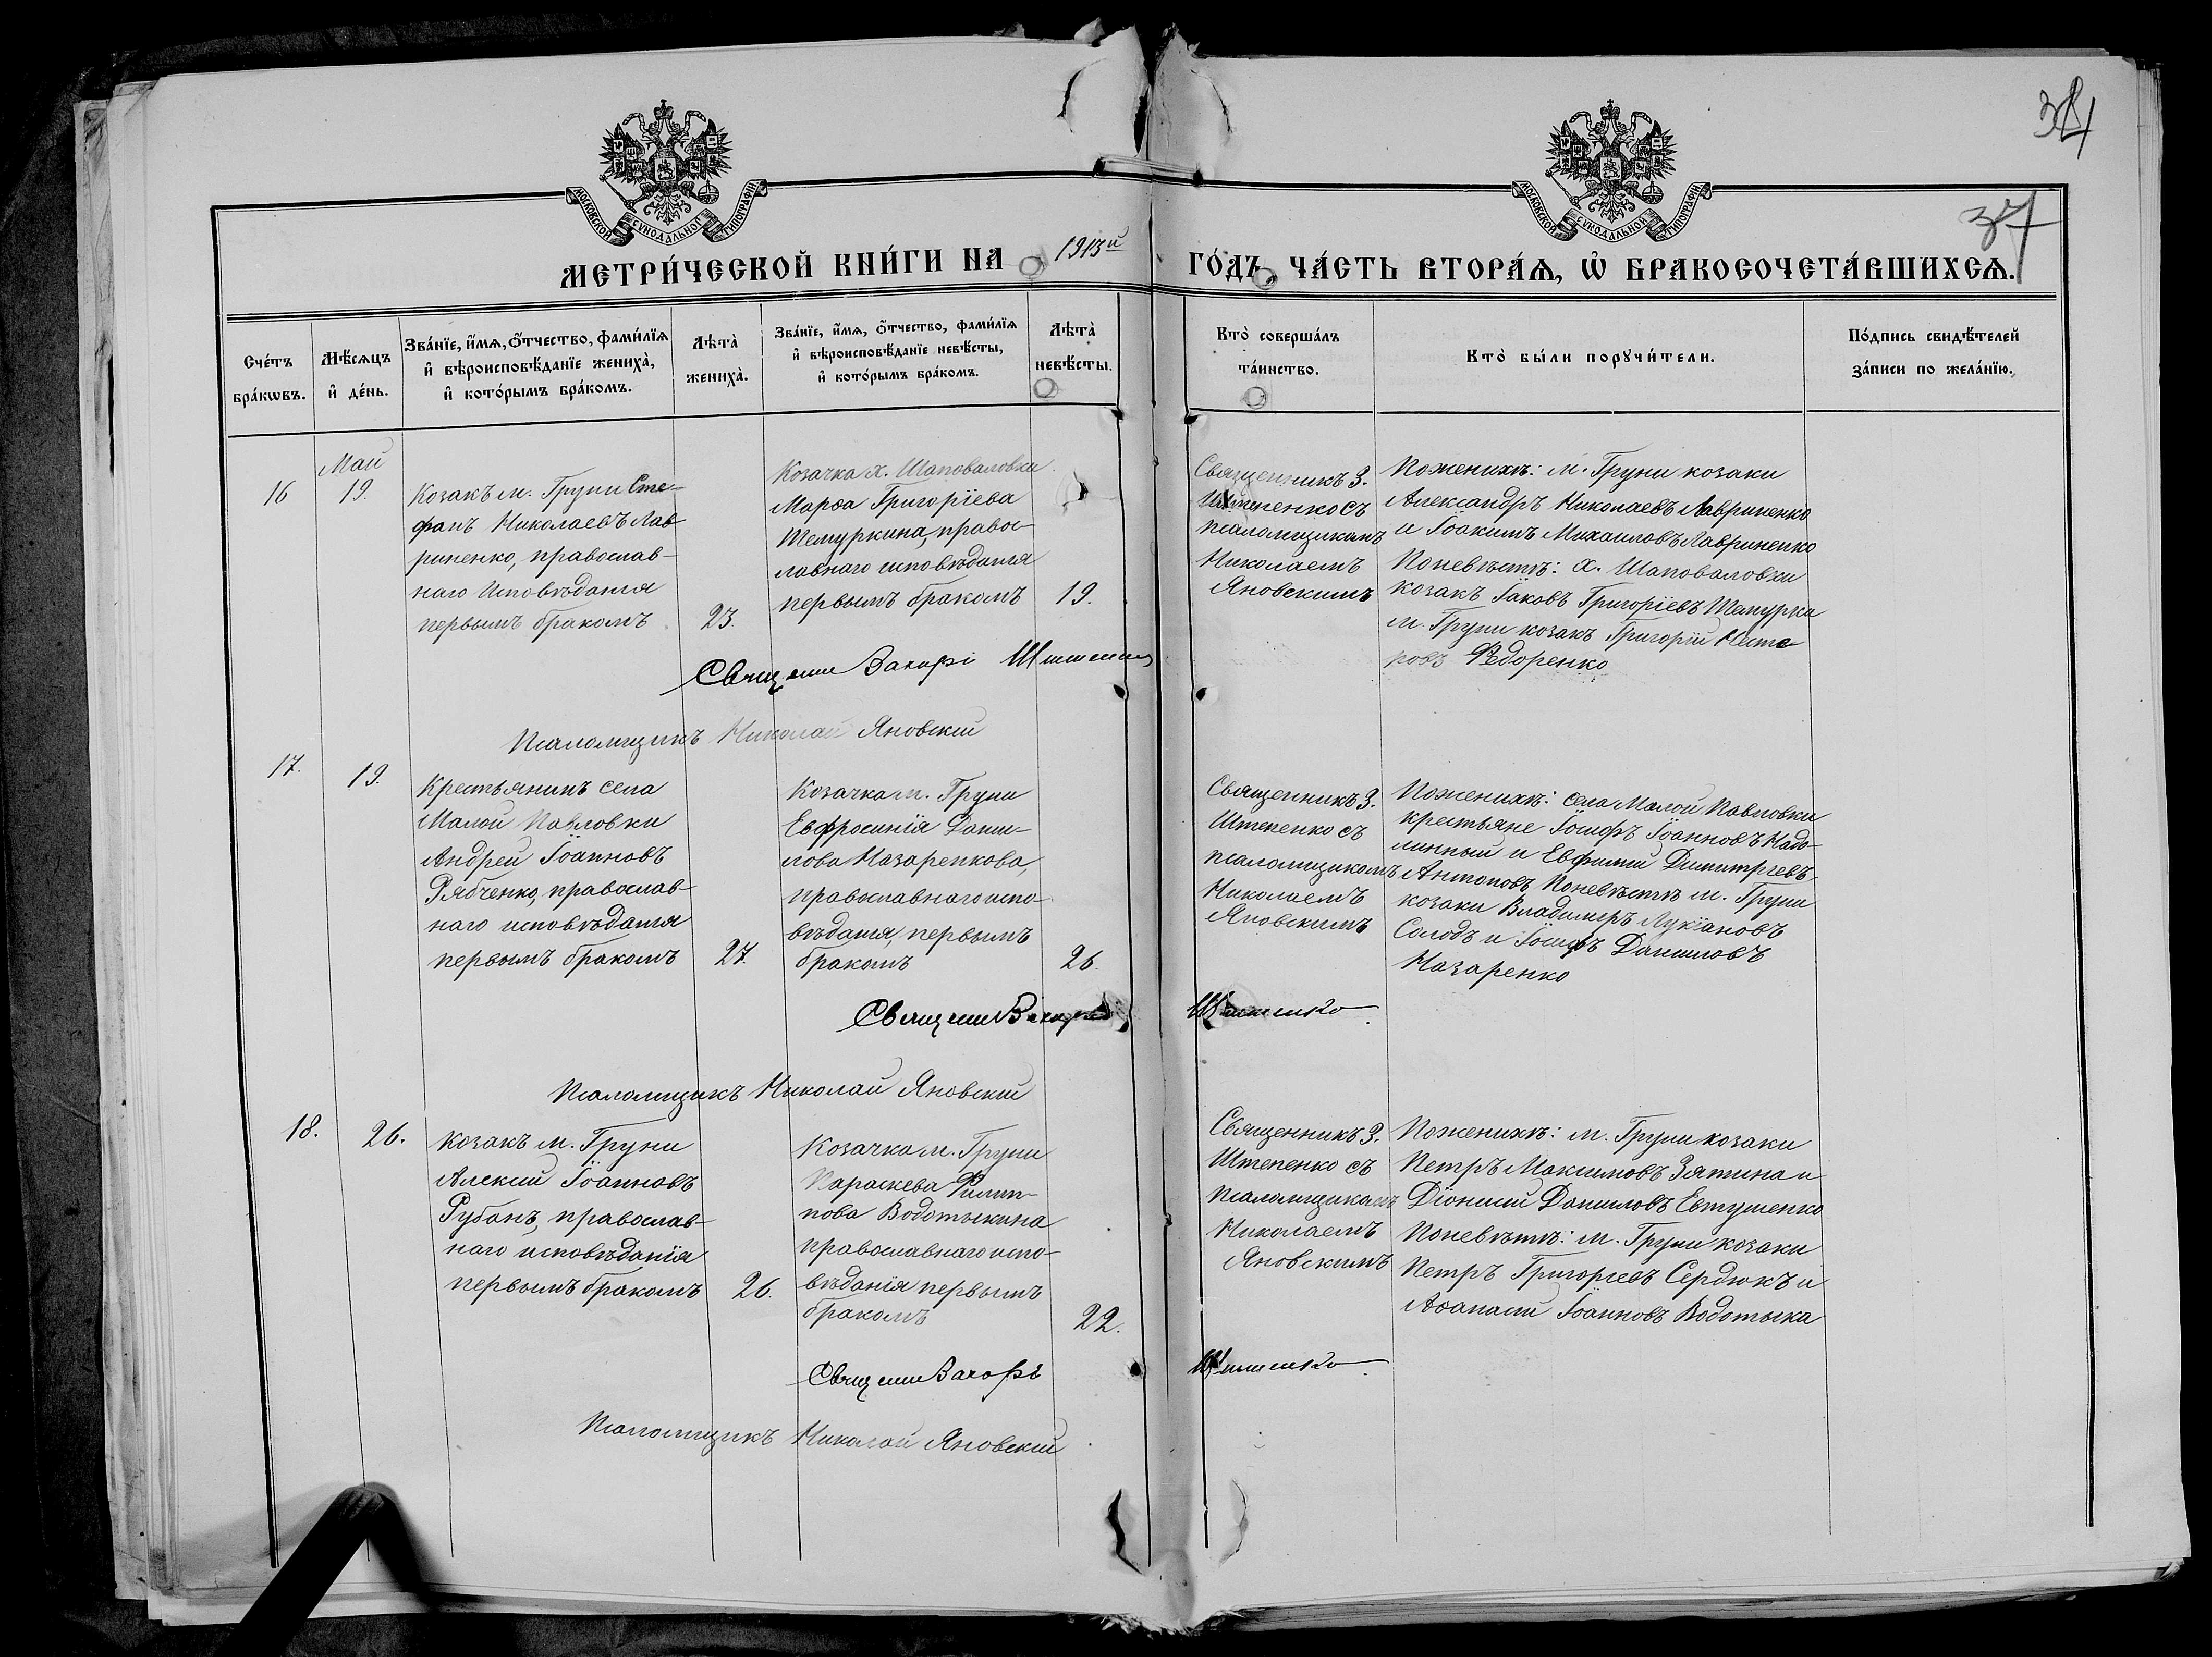 38
37
МОСКОВСКОЙ СѴНОДАЛЬНОЙ ТИПОГРАФІИ
МОСКОВСКОЙ СѴНОДАЛЬНОЙ ТИПОГРАФІИ
МЕТРИ́ЧЕСКОЙ КНИ́ГИ НА 1913й ГО́ДЪ, ЧА́СТЬ ВТОРА́Я, Ѡ҆ БРАКОСОЧЕТА́ВШИХСЯ.
Сче́тъ
бра́кѡвъ.
Мѣ́сяцъ
и҆ де́нь.
Зва́нїе, и҆́мя, ѻ҆́тчество, фами́лїя
и҆ вѣроисповѣ́данїе жениха̀,
и҆ кото́рымъ бра́комъ.
Лѣта̀
жениха̀.
Зва́нїе, и҆́мя, ѻ҆́тчество, фами́лїя
и҆ вѣроисповѣ́данїе невѣ́сты,
и҆ кото́рымъ бра́комъ.
Лѣта̀
невѣ́сты.
Кто̀ соверша́лъ
та́инство.
Кто̀ бы́ли порꙋчи́тели.
По́дпись свидѣ́телей
за́писи по жела́нїю.
16
Май
19.
Козакъ м. Груни Сте-
фанъ Николаевъ Лав
риненко, православ-
наго исповѣданія
первымъ бракомъ
23.
Козачка х. Шаповаловки
Марѳа Григоріева
Шемуркина, право-
лавнаго исповѣданія
первымъ бракомъ
19.
Священникъ З.
Штепенко съ
псаломщикомъ
Николаемъ
Яновскимъ
Поженихѣ: м. Груни козаки
Александръ Николаевъ Лавриненко
и Іоакимъ Михаиловъ Лавриненко
Поневѣстѣ: х. Шаповаловки
козакъ Іаковъ Григоріевъ Шемурка
м. Груни козакъ Григорій Несте
ровъ Ѳедоренко
Псаломщикъ Николай Яновскій
17.
19.
Крестьянинъ села
Малой Павловки
Андрей Іоанновъ
Рябченко, православ-
наго исповѣданія
первымъ бракомъ
27.
Козачка м. Груни
Евфросинія Дани-
лова Назаренкова,
православнаго испо-
вѣданія, первымъ
бракомъ
26.
Священникъ З.
Штепенко съ
псаломщикомъ
Николаемъ
Яновскимъ
Поженихѣ: села Малой Павловки
крестьяне Іосифъ Іоанновъ Кадо-
линный и Евфимій Димитріевъ
Антоновъ Поневѣстѣ м. Груни
козаки Владимеръ Лукіановъ
Солодъ и Іосифъ Даниловъ
Назаренко
Псаломщикъ Николай Яновскій
18.
26.
Козакъ м. Груни
Алексій Іоанновъ
Рубанъ, православ-
наго исповѣданія
первымъ бракомъ
26.
Козачка м. Груни
Параскева Филип-
пова Водотыкина
православнаго испо-
вѣданія первымъ
бракомъ
22.
Священникъ З.
Штепенко съ
псаломщикомъ
Николаемъ
Яновскимъ
Поженихѣ: м. Груни козаки
Петръ Максимовъ Зятина и
Діонисій Даниловъ Евтушенко
Поневѣстѣ: м. Груни козаки
Петръ Григорьевъ Сердюкъ и
Аѳанасій Іоанновъ Водотыка
Псаломщикъ Николай Яновскій